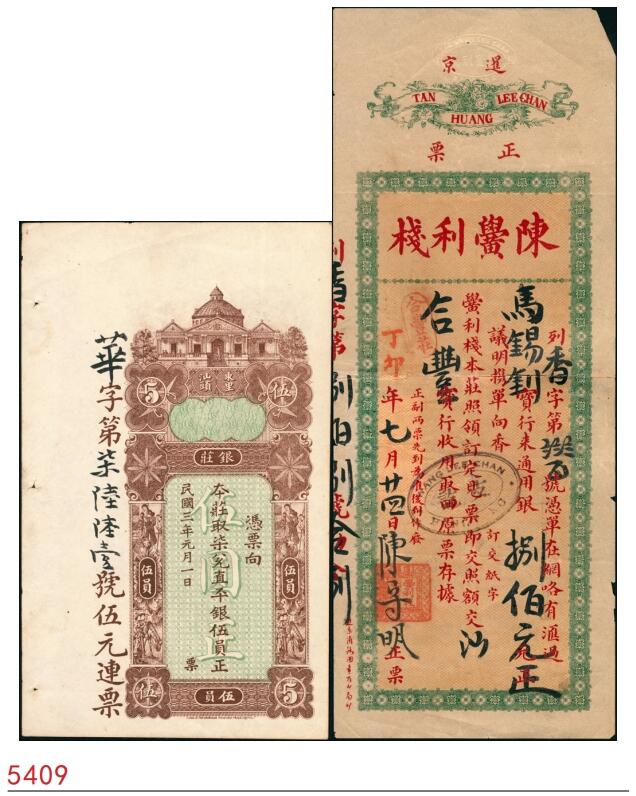 暹 京
TAN HUANG LEE CHAN
正 票
陳黌利棧
列香字第 號憑單在網咯有滙過
馬錫釗寶行來通用銀捌佰元正
議明携單向香 訂交紙字
黌利棧本莊照領訂定見票即交照額交汕
合豐寶行收用取回原票存據
正副兩票先到為真後到作廢
丁卯年七月廿四日陳守明正票
HUANG LEE CHAN
5
伍
汕頭
東里
銀莊
憑票向
本莊取柒兌直平銀伍員正
民國三年元月一日
票
伍圓正
伍員
伍員
伍
伍員
5
華字第柒陸陸壹號伍元連票
5409